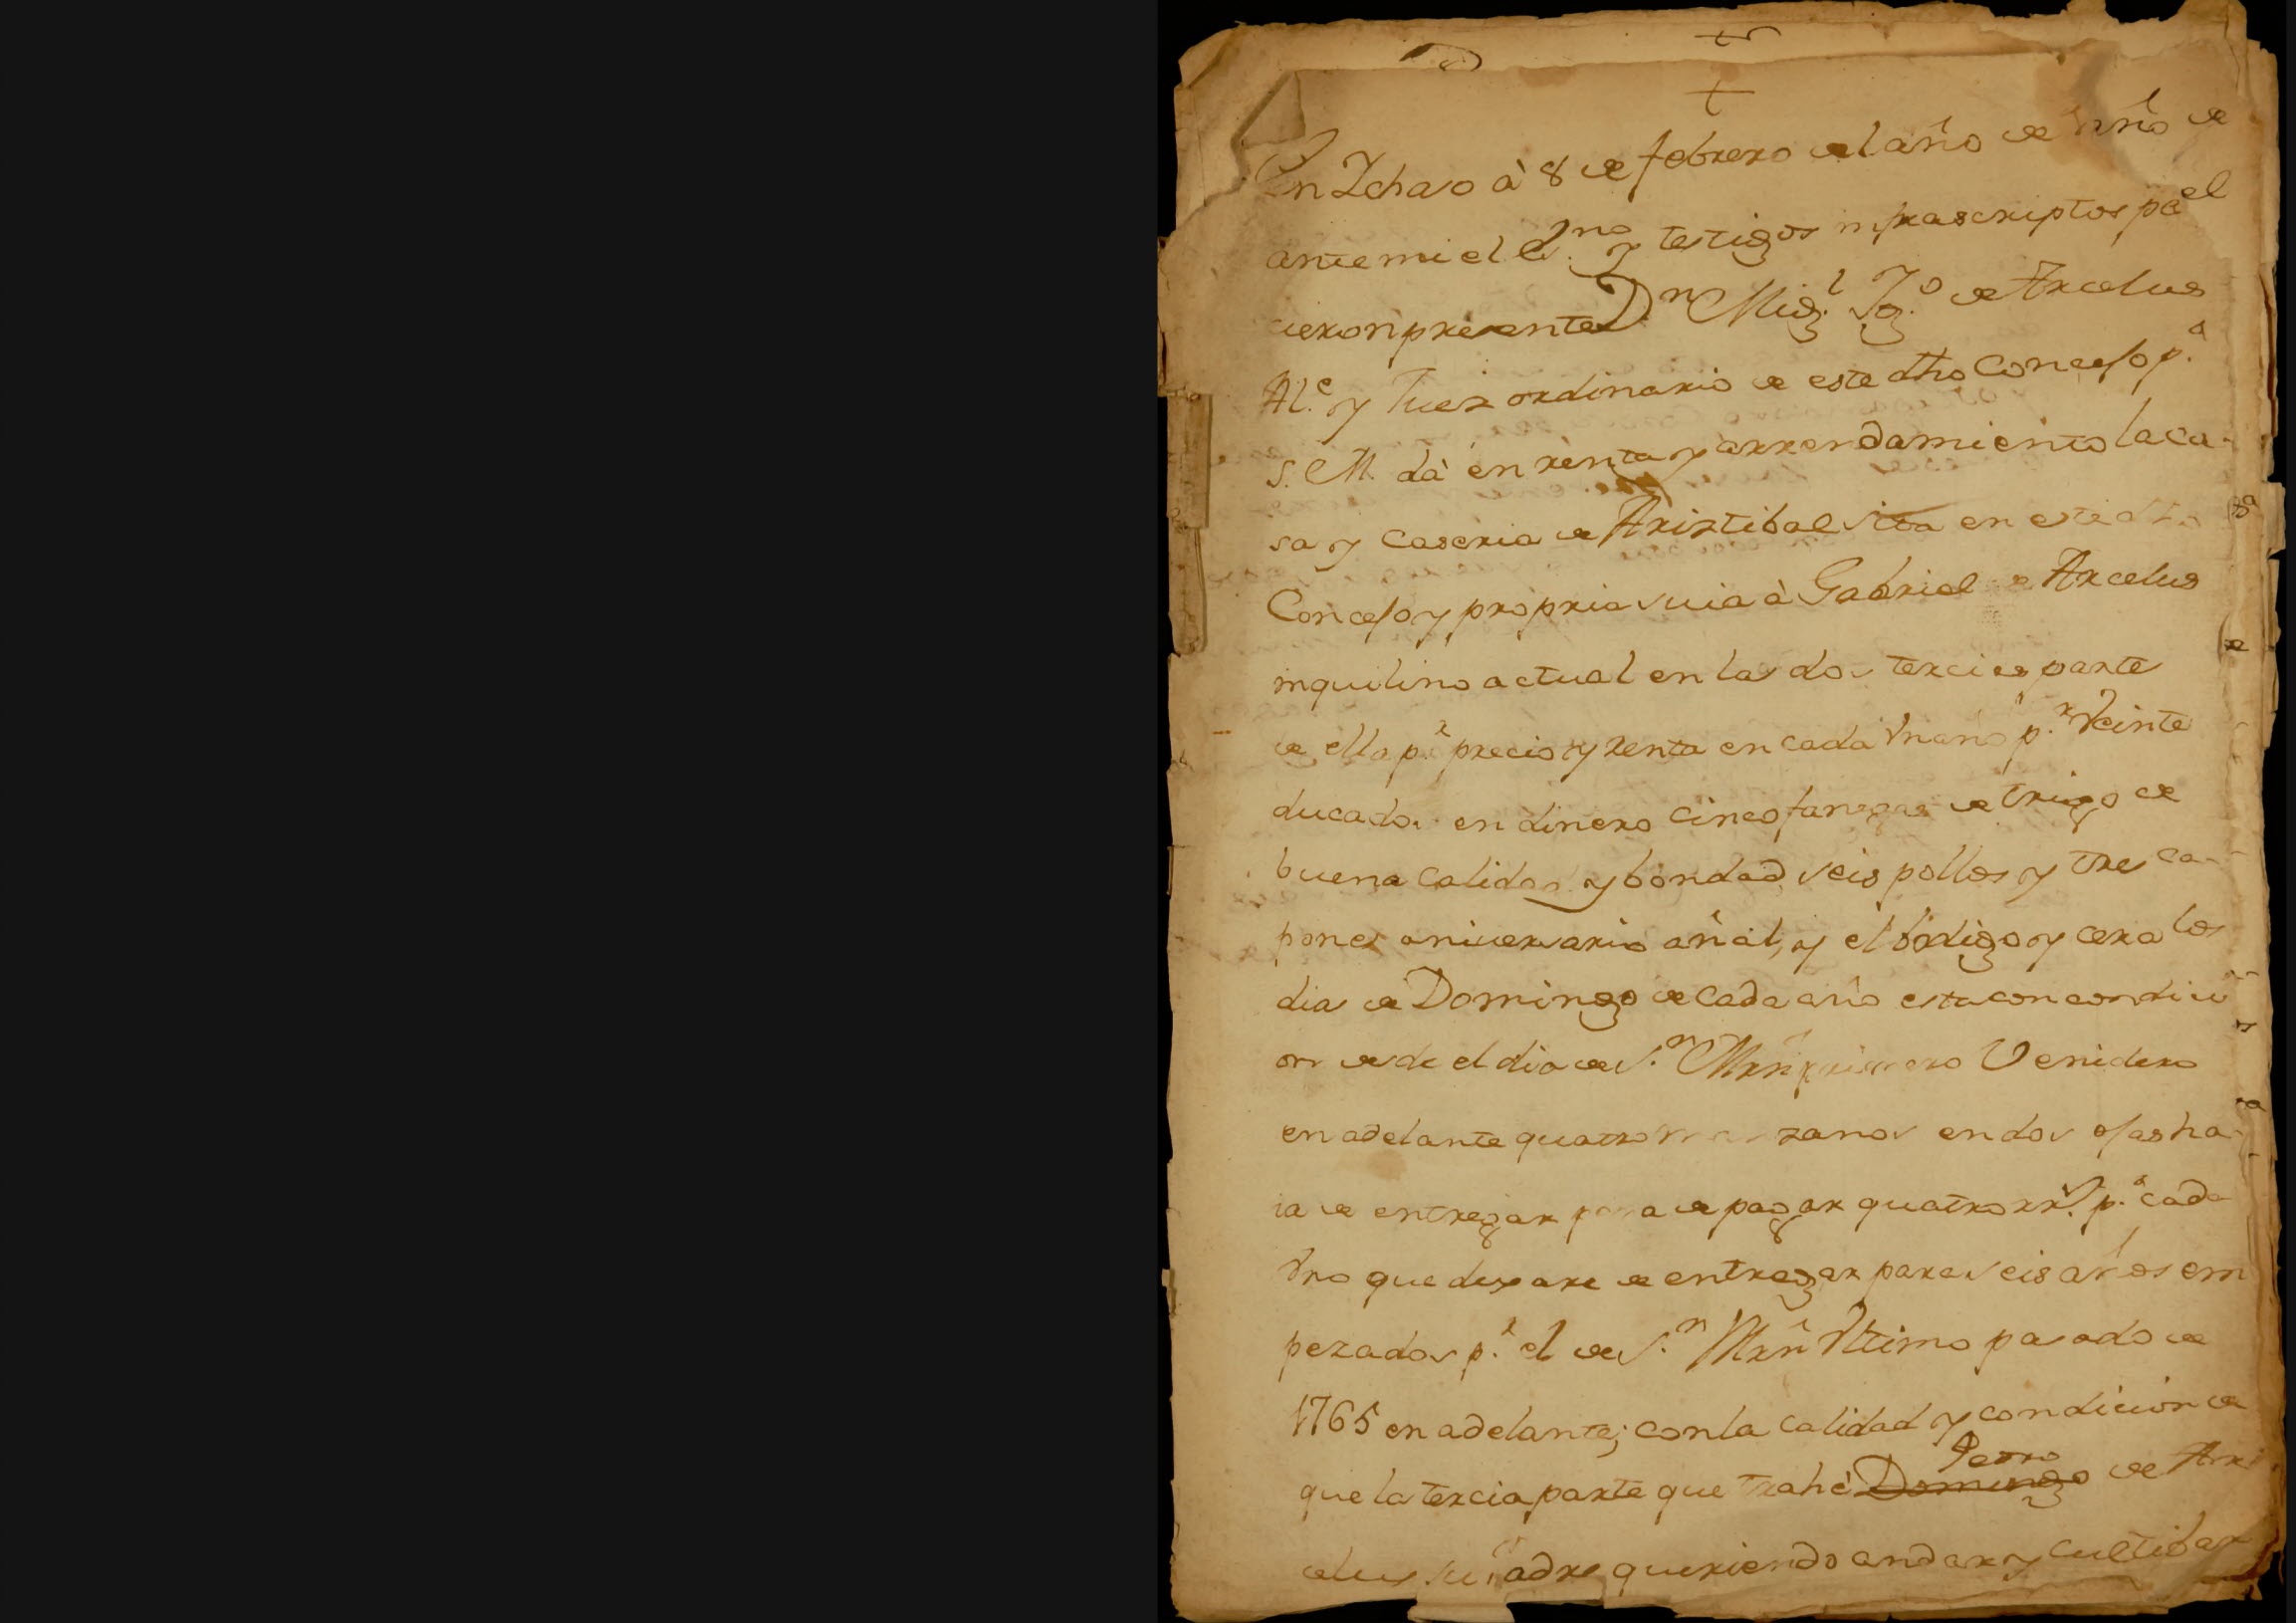 +
En Ichaso à 8 de febrero del año de
ante mi el es.no y testigos infrascriptos pa
el
recieron presentes D.n Mig.l Ig.o de Arcelus
Al.e y Juez ordinario de este dho Concejo p.a
S. M. dà en renta y arrendamiento la ca-
sa y caseria de Ariztibal sita en este dho
Concejo y propria suia à Gabriel de Arcelus
inquilino actual en las dos tercias partes
de ella p.r precio y renta en cada vn año p.r Veinte
ducados en dinero cinco fanegas de trigo de
buena calidad y bondad seis pollos y tres ca-
pones aniversario añal, y el bodigo y cera los
dias de Domingo de cada año esta con condici
on desde el dia de S.n Mrn primero Venidero
en adelante quatro manzanos en dos ojas ha-
ia de entregar pena de pagar quatro rr.s p.r cada
Vno que dexare de entregar para seis años em
pezados p.r el de S.n Mrn Vltimo pasado de
1765 en adelante; con la calidad y condicion de
que la tercia parte que trahe Domingo Pedro de Ar
celus su Padre queriendo andar y cultibar